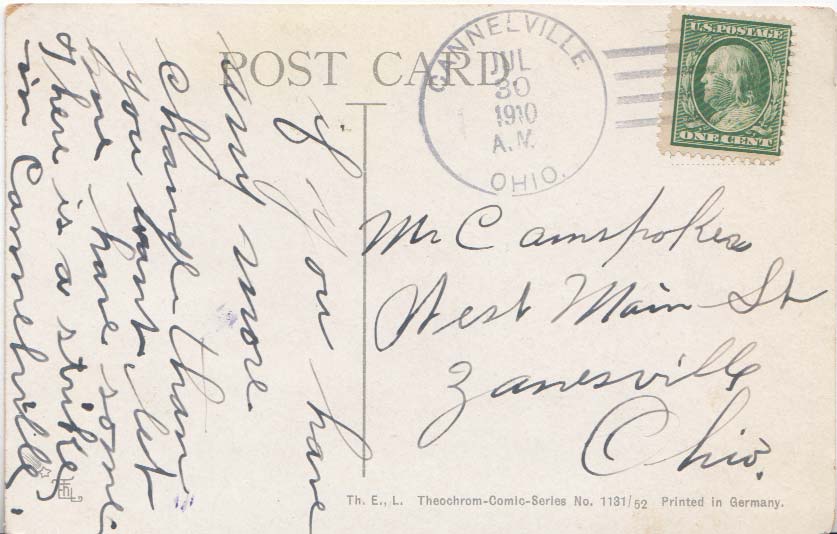 POST CARD
CANNELVILLE.
JUL
30
1910
A.M.
OHIO.
U.S. POSTAGE
ONE CENT
If you have
any more
change than
you want let
me have some
there is a strike
in Cannelville.
Mr C
West Main St
Zanesville
Ohio.
Th. E., L. Theochrom-Comic-Series No. 1131/52 Printed in Germany.